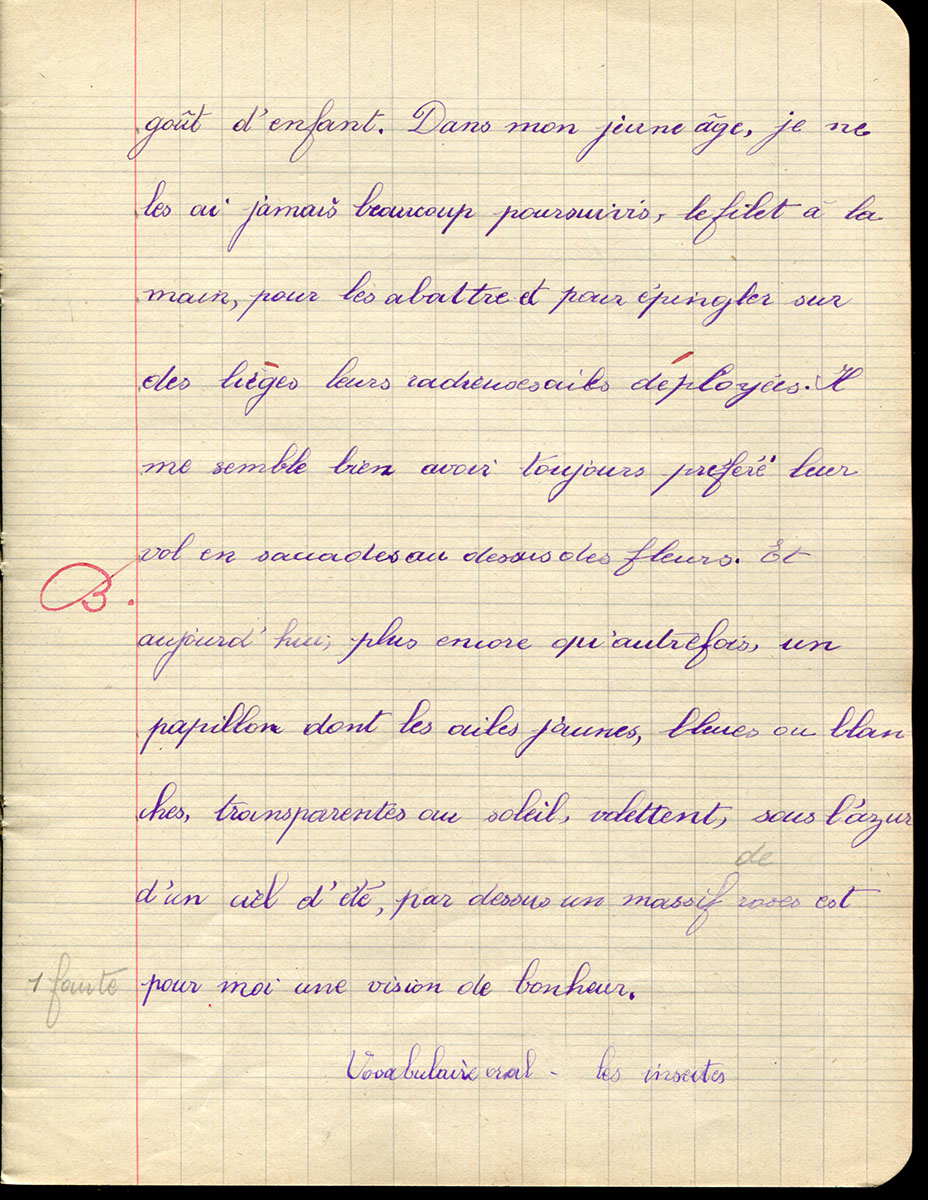 goût d'enfant. Dans mon jeune âge, je ne
les ai jamais beaucoup poursuivis, le filet à la
main, pour les abattre et pour épingler sur
des lièges leurs radieuses ailes déployées. Il
me semble bien avoir toujours préféré leur
vol en saccades au dessus des fleurs. Et
B.
aujourd'hui, plus encore qu'autrefois, un
papillon dont les ailes jaunes, bleues ou blan
ches, transparentes au soleil, volettent, sous l'azur
de
d'un ciel d'été, par dessus un massif roses est
1 faute pour moi une vision de bonheur.
Vocabulaire oral - les insectes